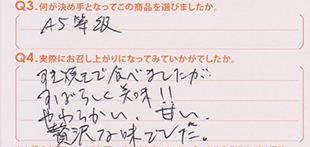 Q3.何が決め手となってこの商品を選びましたか。
A5等級
Q4.実際にお召し上がりになってみていかがでしたか。
すき焼きで食べましたが
すばらしく美味!!
やわらかい、甘い、
贅沢な味でした。